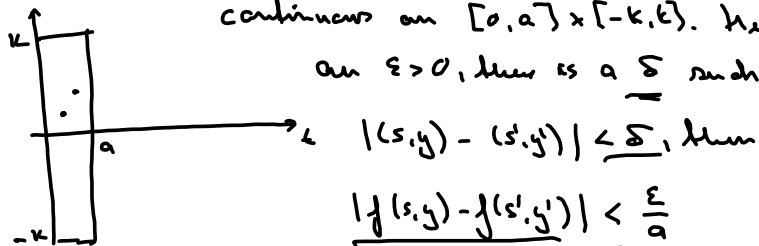 continuous on [0,a] × [-K,K]. He
K an ε > 0, there is a δ such
a t |(s,y) - (s',y')| < δ, then
-K |f(s,y) - f(s',y')| < ε/a